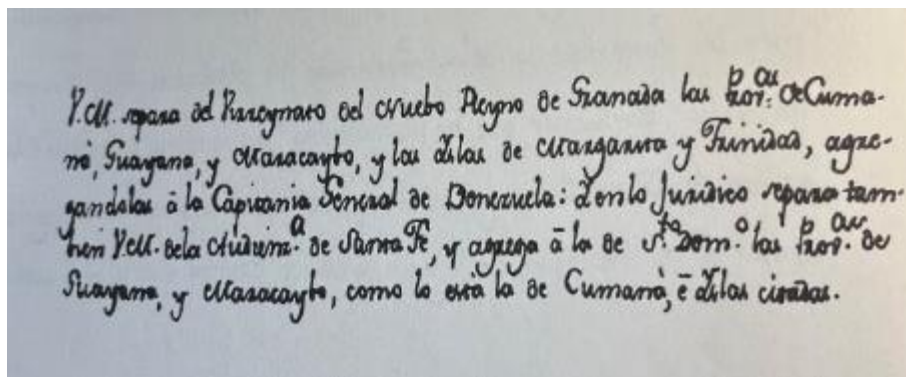 V.M. separa del Virreynato del Nuebo Reyno de Granada las Prov.s de Cuma-
nà, Guayana, y Maracaybo, y las Yslas de Margarita y Trinidad, agre-
gandolas à la Capitania General de Venezuela: Y en lo Juridico separa tam-
bien V.M. dela Audienz.a de Santa Fe, y agrega à la de S.to Dom.o las Prov.s de
Guayana, y Maracaybo, como lo està la de Cumanà, è Yslas citadas.